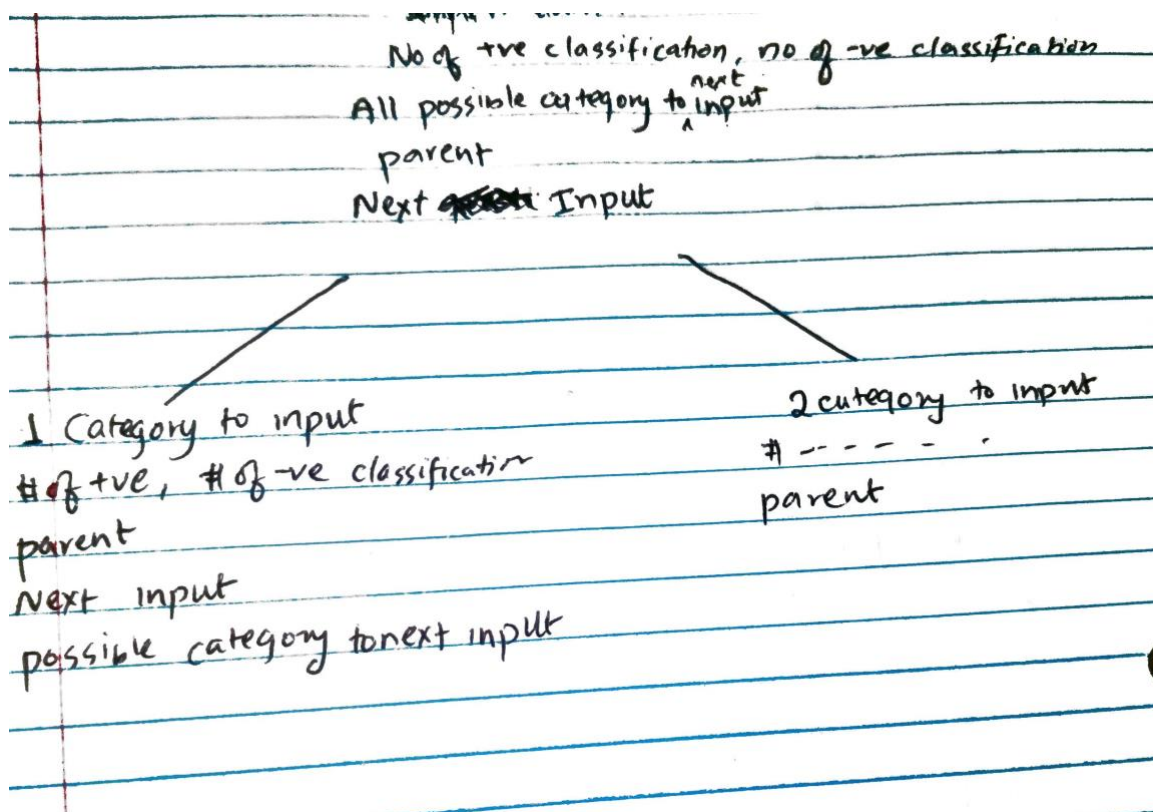 No of +ve classification, no of -ve classification
All possible category to next input
parent
Next Input
1 Category to input
# of +ve, # of -ve classification
parent
Next input
possible category to next input
2 category to input
# - - - - - -
parent